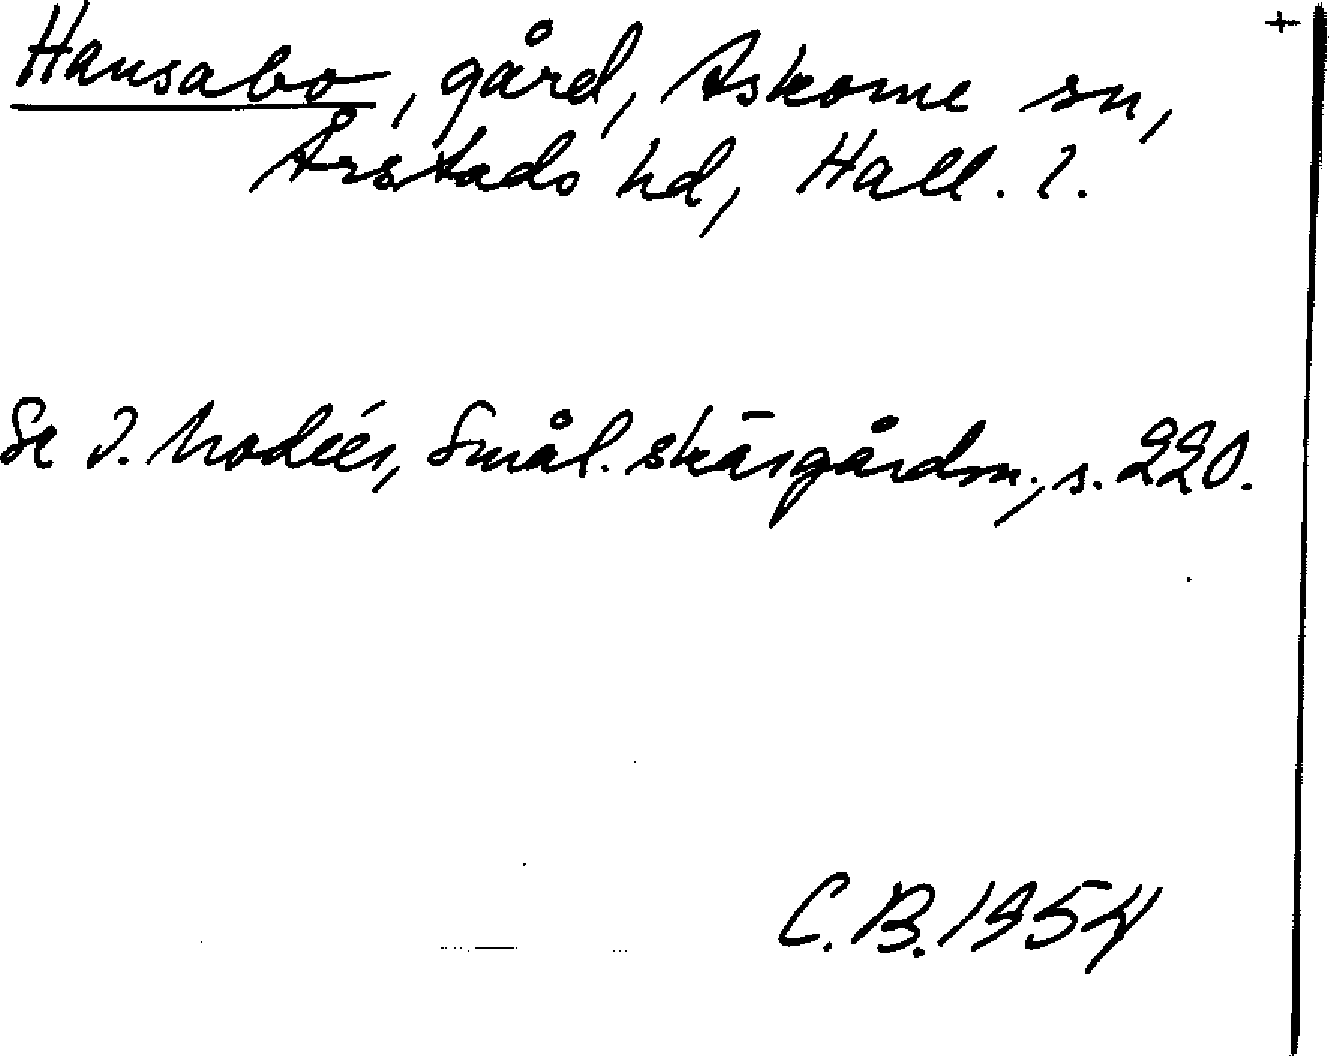 +
Hansabo, gård, Askome sn,
Årstads hd, Hall. l.
Se I. Modéer, Smål. skärgårdsn., s. 220.
C.B. 1954